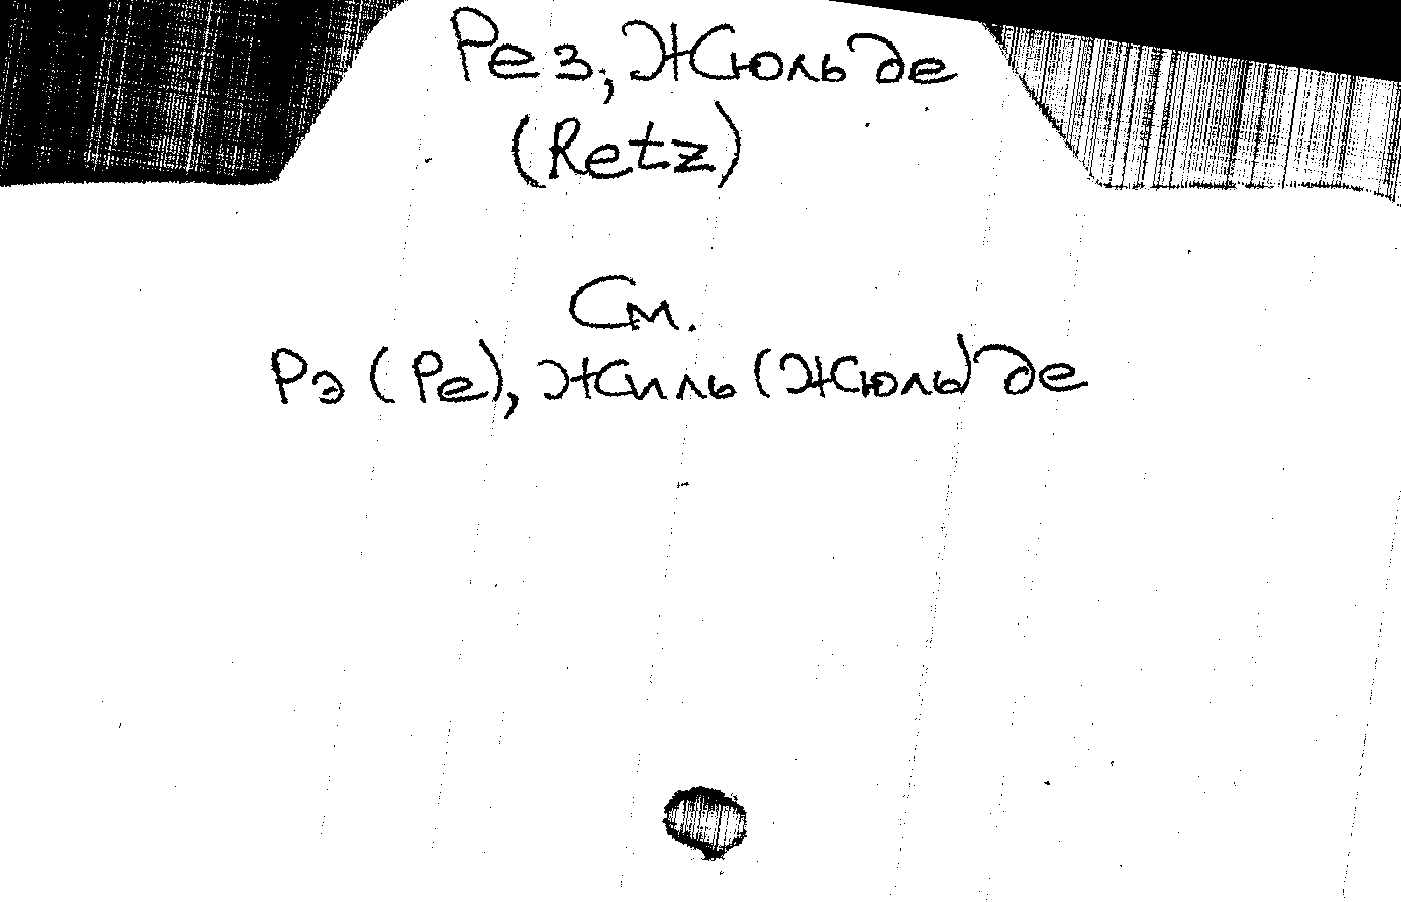 Рез, Жюль де
(Retz)
См.
Рэ (Ре), Жиль (Жюль) де